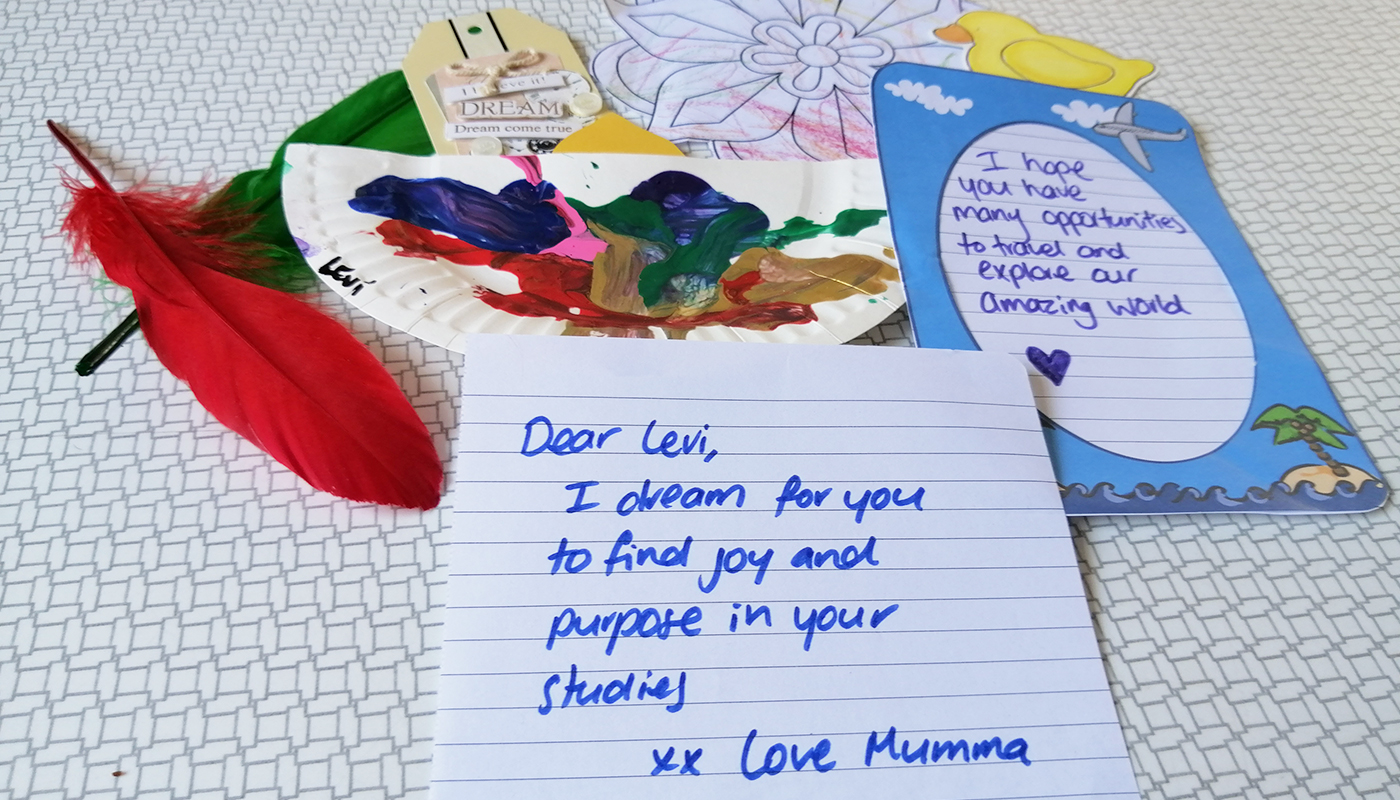 DREAM
Dream come true
Levi
I hope
you have
many opportunities
to travel and
explore our
amazing world
Dear Levi,
I dream for you
to find joy and
purpose in your
studies
xx Love Mumma